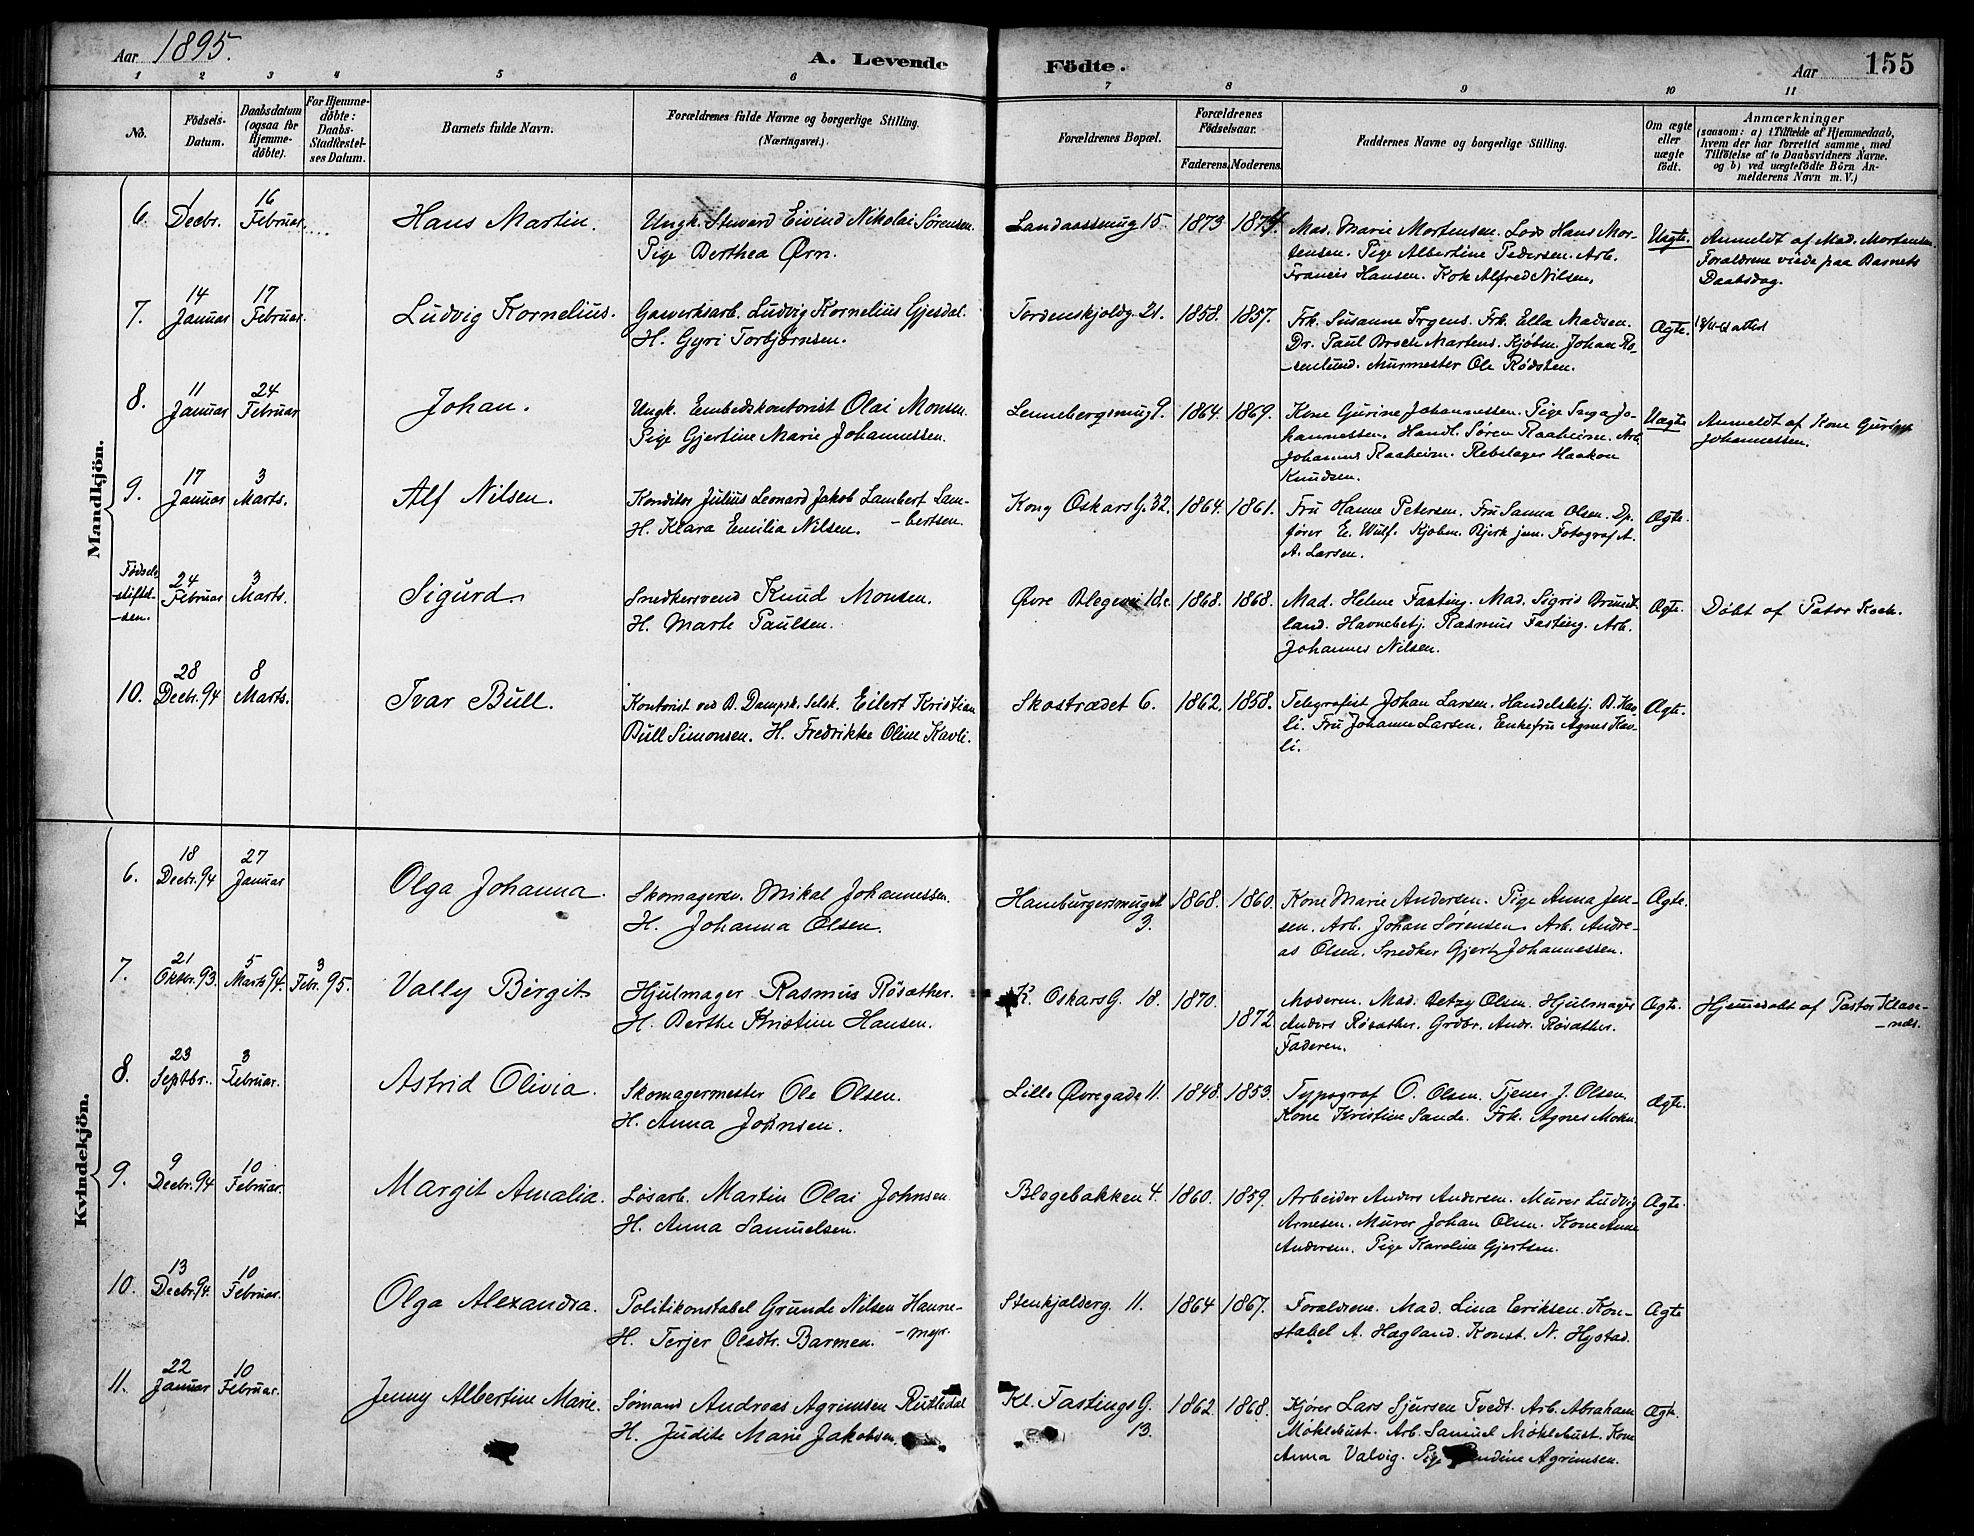 Aar 1895.
A. Levende Födte.
Aar 155
1 2 3 4 5 6 7 8 9 10 11
No.
Födsels-Datum.
Daabsdatum (ogsaa for Hjemme-döbte).
For Hjemme-döbte: Daabs-Stadfæstel-ses Datum.
Barnets fulde Navn.
Forældrenes fulde Navne og borgerlige Stilling.
(Næringsvei.)
Forældrenes Bopæl.
Forældrenes Födselsaar.
Faderens. Moderens.
Faddernes Navne og borgerlige Stilling.
Om ægte eller uægte födt.
Anmærkninger
(saasom: a) i Tilfælde af Hjemmedaab, hvem der har forrettet samme, med Tilföielse af to Daabsvidners Navne, og b) ved uægtefödte Börn An-melderens Navn m. V.)
Mandkjön.
6. 1 Decbr. 16 Februar. Hans Martin. Ungk. Stuvard Eivind Nikolai Sørensen.
Pige Berthea Ørn.
Landaassmug 15. 1873 1874
Mad. Marie Mortensen. Lods Hans Mor-
tensen. Pige Albertine Pedersen. Arb.
Francis Hansen. Kok Alfred Nilsen.
Uægte.
Anmeldt af Mad. Mortensen.
Forældrene viede paa Barnets
Daabsdag.
7. 14 Januar 17 Februar. Ludvig Kornelius. Gasverksarb. Ludvig Kornelius Gjesdal.
H. Gyri Torbjørnsen.
Tordenskjoldg. 21. 1858. 1857.
Frk. Susanne Irgens. Frk. Ella Madsen.
Dr. Paul Broch Martens. Kjøbm. Johan Ro-
senlund. Murmester Ole Rødsten.
Ægte.
8. 11 Januar 24 Februar Johan. Ungk. Embedskontorist Olai Monsen.
Pige Gjertine Marie Johannessen.
Lennebergsmug 9. 1864. 1869.
Kone Gurine Johannessen. Pige Inga Jo-
hannessen. Handl. Søren Raaheim. Arb.
Johannes Raaheim. Rebslager Haakon
Knudsen.
Uægte
Anmeldt af Kone Gurine
Johannessen.
9. 17 Januar 3 Marts. Alf Nilsen. Konditor Julius Leonard Jakob Lambert Lam-
H. Klara Emilia Nilsen. -bertsen.
Kong Oskars G. 32. 1864. 1861.
Fru Hanne Petersen. Fru Sanna Olsen. Dp.
fører E. Wulf. Kjøbm. Bjerk jun. Fotograf A.
A. Larsen.
Ægte.
Fødsels-
stiftel-
-sen.
24 Februar 3 Marts. Sigurd. Snedkersvend Knud Monsen.
H. Marte Paulsen.
Øvre Blegevei 10c. 1868. 1868.
Mad. Helene Fasting. Mad. Sigrid Brundt-
land. Havnebetj. Rasmus Fasting. Arb.
Johannes Nilsen.
Ægte.
Døbt af Pastor Koch.
10. 28 Decbr. 94 8 Marts. Ivar Bull. Kontorist ved B. Dampsk. Selsk. Eilert Kristian
Bull Simonsen. H. Fredrikke Oline Kavli.
Skostrædet 6. 1862. 1858.
Telegrafist Johan Larsen. Handelsbetj. B. Kav-
li. Fru Johanne Larsen. Enkefru Agnes Kav-
li.
Ægte.
Kvindekjön.
6. 18 Decbr. 94 27 Januar Olga Johanna. Skomagersv. Mikal Johannessen.
H. Johanna Olsen.
Hamburgersmuget
3.
1868. 1860.
Kone Marie Andersen. Pige Anna Jen-
sen. Arb. Johan Sørensen. Arb. Andre-
as Olsen. Snedker Gjert Johannessen.
Ægte.
7. 21 Oktbr. 93. 5 Marts 94. 3 Febr. 95. Vally Birgit Hjulmager Rasmus Røsæther.
H. Berthe Kristine Hansen.
K. Oskars G. 18. 1870. 1872
Moderen. Mad. Betzy Olsen. Hjulmager
Anders Røsæther. Grdbr. Andr. Røsæther.
Faderen.
Ægte.
Hjemmedøbt af Pastor Klave-
-næs.
8. 23 Septbr. 3 Februar. Astrid Olivia. Skomagermester Ole Olsen.
H. Anna Johnsen.
Lille Øvregade 11. 1848. 1853.
Typograf O. Olsen. Tjener J. Olsen.
Kone Kristine Sande. Frk. Agnes Mohn.
Ægte.
9. 9 Decbr. 94 10 Februar. Margit Amalia. Løsarb. Martin Olai Johnsen.
H. Anna Samuelsen.
Blegebakken 4. 1860. 1859.
Arbeider Anders Andersen. Murer Ludvig
Arnesen. Murer Johan Olsen. Kone Anne
Andersen. Pige Karoline Gjertsen.
Ægte.
10. 13 Decbr. 94. 10 Februar. Olga Alexandra. Politikonstabel Grunde Nilsen Hanne-
H. Terjer Olsdtr. Barmen. -myr.
Stenkjælderg. 11. 1864 1867.
Forældrene. Mad. Lina Eriksen. Kon-
stabel A. Hagland. Konst. N. Hystad.
Ægte
11. 22 Januar 10 Februar. Jenny Albertine Marie. Sømand Andreas Agrimsen Rutledal
H. Judite Marie Jakobsen.
Kl. Fastings G.
13.
1862. 1868.
Kjører Lars Sjursen Tvedt. Arb. Abraham
Møklebust. Arb. Samuel Møklebust. Kone
Anna Valvig. Pige Agrimsen.
Ægte.